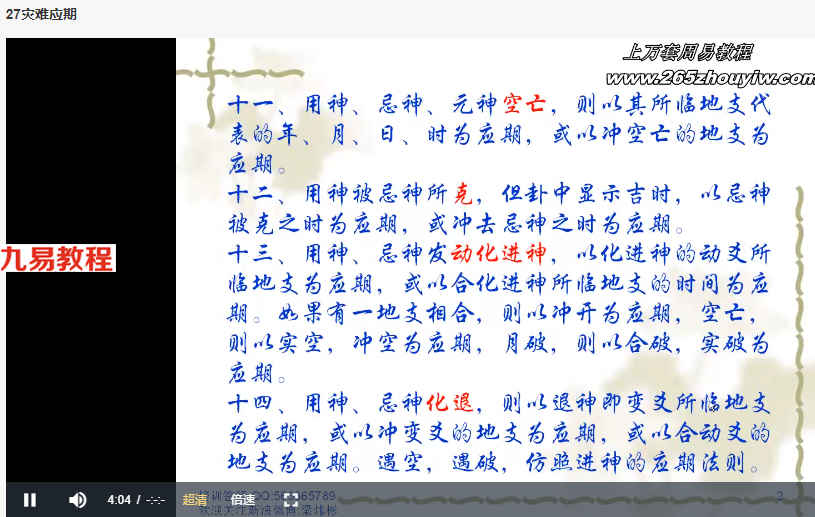 27灾难应期
上万套周易教程
www.265zhouyiw.com
十一、用神、忌神、元神空亡，则以其所临地支代
表的年、月、日、时为应期，或以冲空亡的地支为
应期。
十二、用神被忌神所克，但卦中显示吉时，以忌神
被克之时为应期，或冲去忌神之时为应期。
九易教程
十三、用神、忌神发动化进神，以化进神的动爻所
临地支为应期，或以合化进神所临地支的时间为应
期。如果有一地支相合，则以冲开为应期，空亡，
则以实空，冲空为应期，月破，则以合破，实破为
应期。
十四、用神、忌神化退，则以退神即变爻所临地支
为应期，或以冲变爻的地支为应期，或以合动爻的
地支为应期。遇空，遇破，仿照进神的应期法则。
4:04 / -:-:- 超清 倍速
2